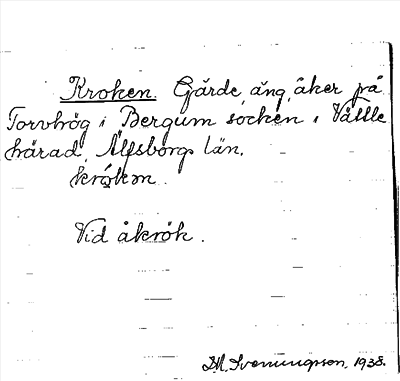 Kroken. Gärde, äng, åker på
Torvhög i Bergum socken i Vättle
härad, Älfsborgs län.
krókən.
Vid åkrök.
D.A. Svenungsson, 1938.